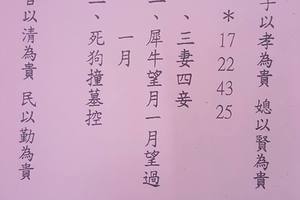 子以孝為貴 媳以賢為貴
*
17
22
43
25
、三妻四妾
、犀牛望月一月望過
一月
、死狗撞墓控
以清為貴 民以勤為貴